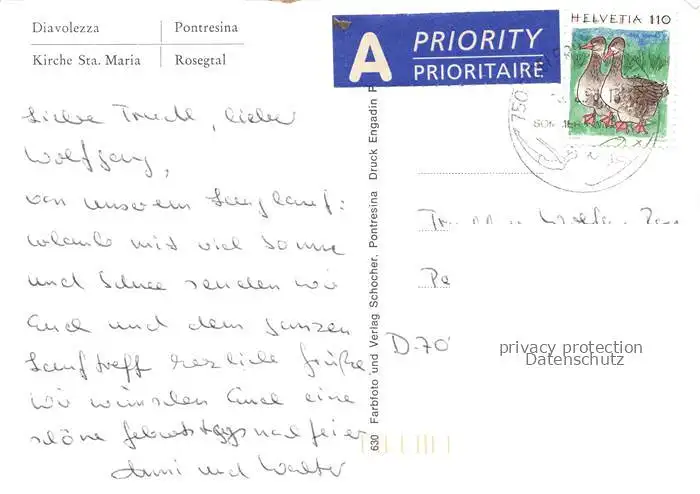 Diavolezza
Pontresina
Kirche Sta. Maria
Rosegtal
A PRIORITY
PRIORITAIRE
HELVETIA 110
Liebe Trudl, lieber
Wolfgang,
von unserem Langlauf:
urlaub mit viel Sonne
und Schnee senden wir
Euch und dem ganzen
Lauftreff herzliche Grüße
wir wünschen Euch eine
schöne Geburtstagsnachfeier
Anni und Walter
630 Farbfoto und Verlag Schocher, Pontresina Druck Engadin P
D-70
privacy protection
Datenschutz